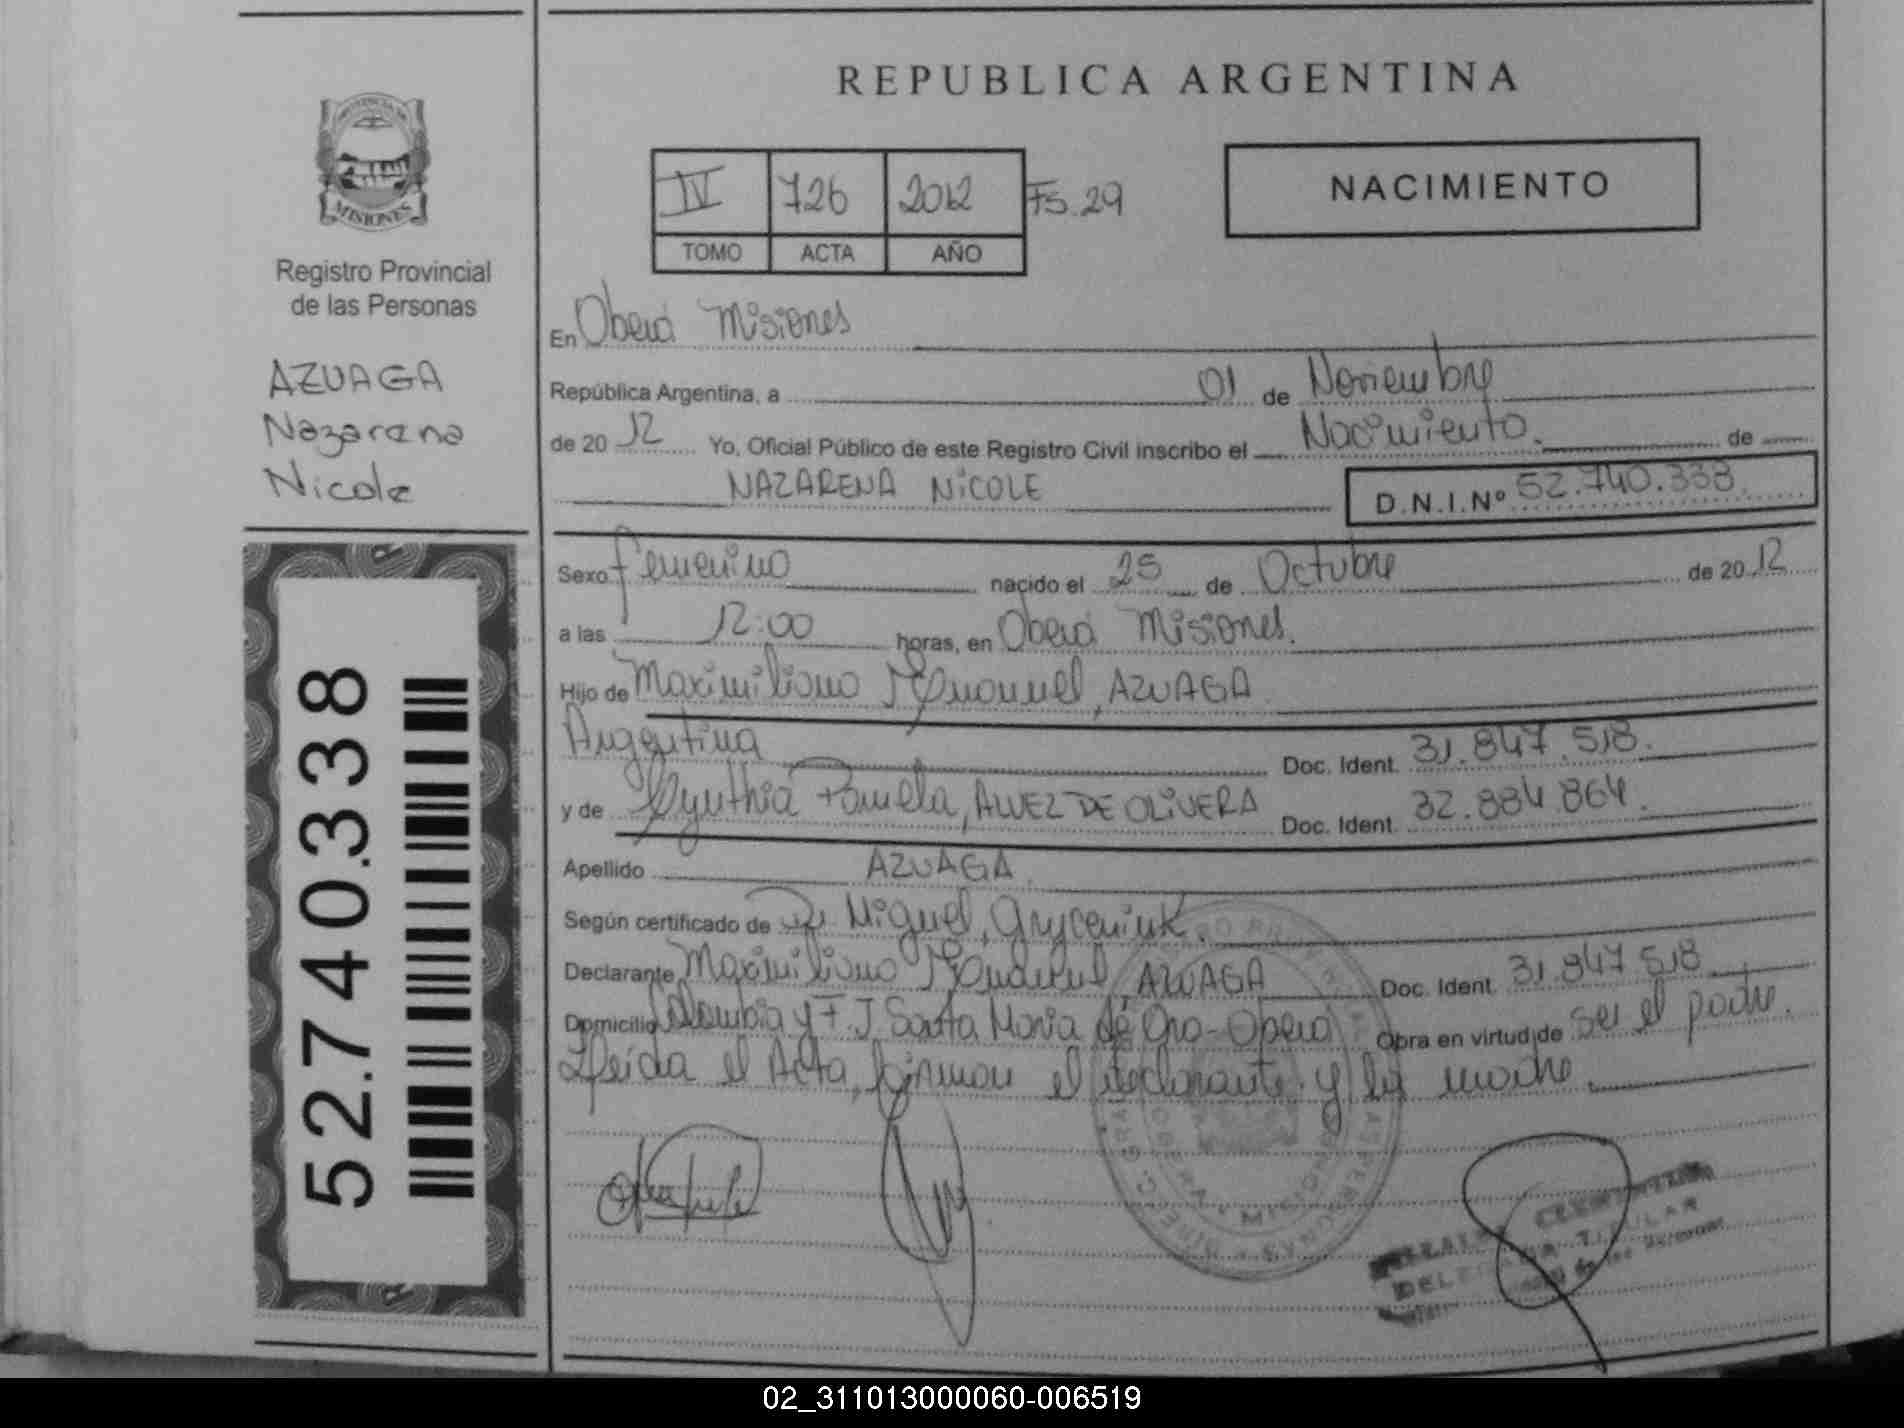 REPUBLICA ARGENTINA
PROVINCIA DE
MISIONES
Registro Provincial
de las Personas
AZUAGA
Nazarena
Nicole
52.740.338
IV 726 2012 Fs.29
TOMO ACTA AÑO
NACIMIENTO
En Oberá Misiones
República Argentina, a 01 de Noviembre
de 20 12 Yo, Oficial Público de este Registro Civil inscribo el Nacimiento. de
NAZARENA NICOLE D.N.I.Nº 52.740.338.
Sexo femenino nacido el 25 de Octubre de 20 12
a las 12:00 horas, en Oberá Misiones.
Hijo de Maximiliano Emanuel, AZUAGA
Argentina Doc. Ident. 31.847.518.
y de Cynthia Pamela, ALVEZ DE OLIVERA Doc. Ident. 32.884.864.
Apellido AZUAGA.
Según certificado de Dr Miguel, Gryceniuk.
Declarante Maximiliano Emanuel AZUAGA Doc. Ident. 31.847.518
Domicilio Colombia y F. J Santa Maria de Oro - Oberá Obra en virtud de ser el padre.
Leída el Acta, firman el declarante y la madre.
DELEGADA TITULAR
02_311013000060-006519